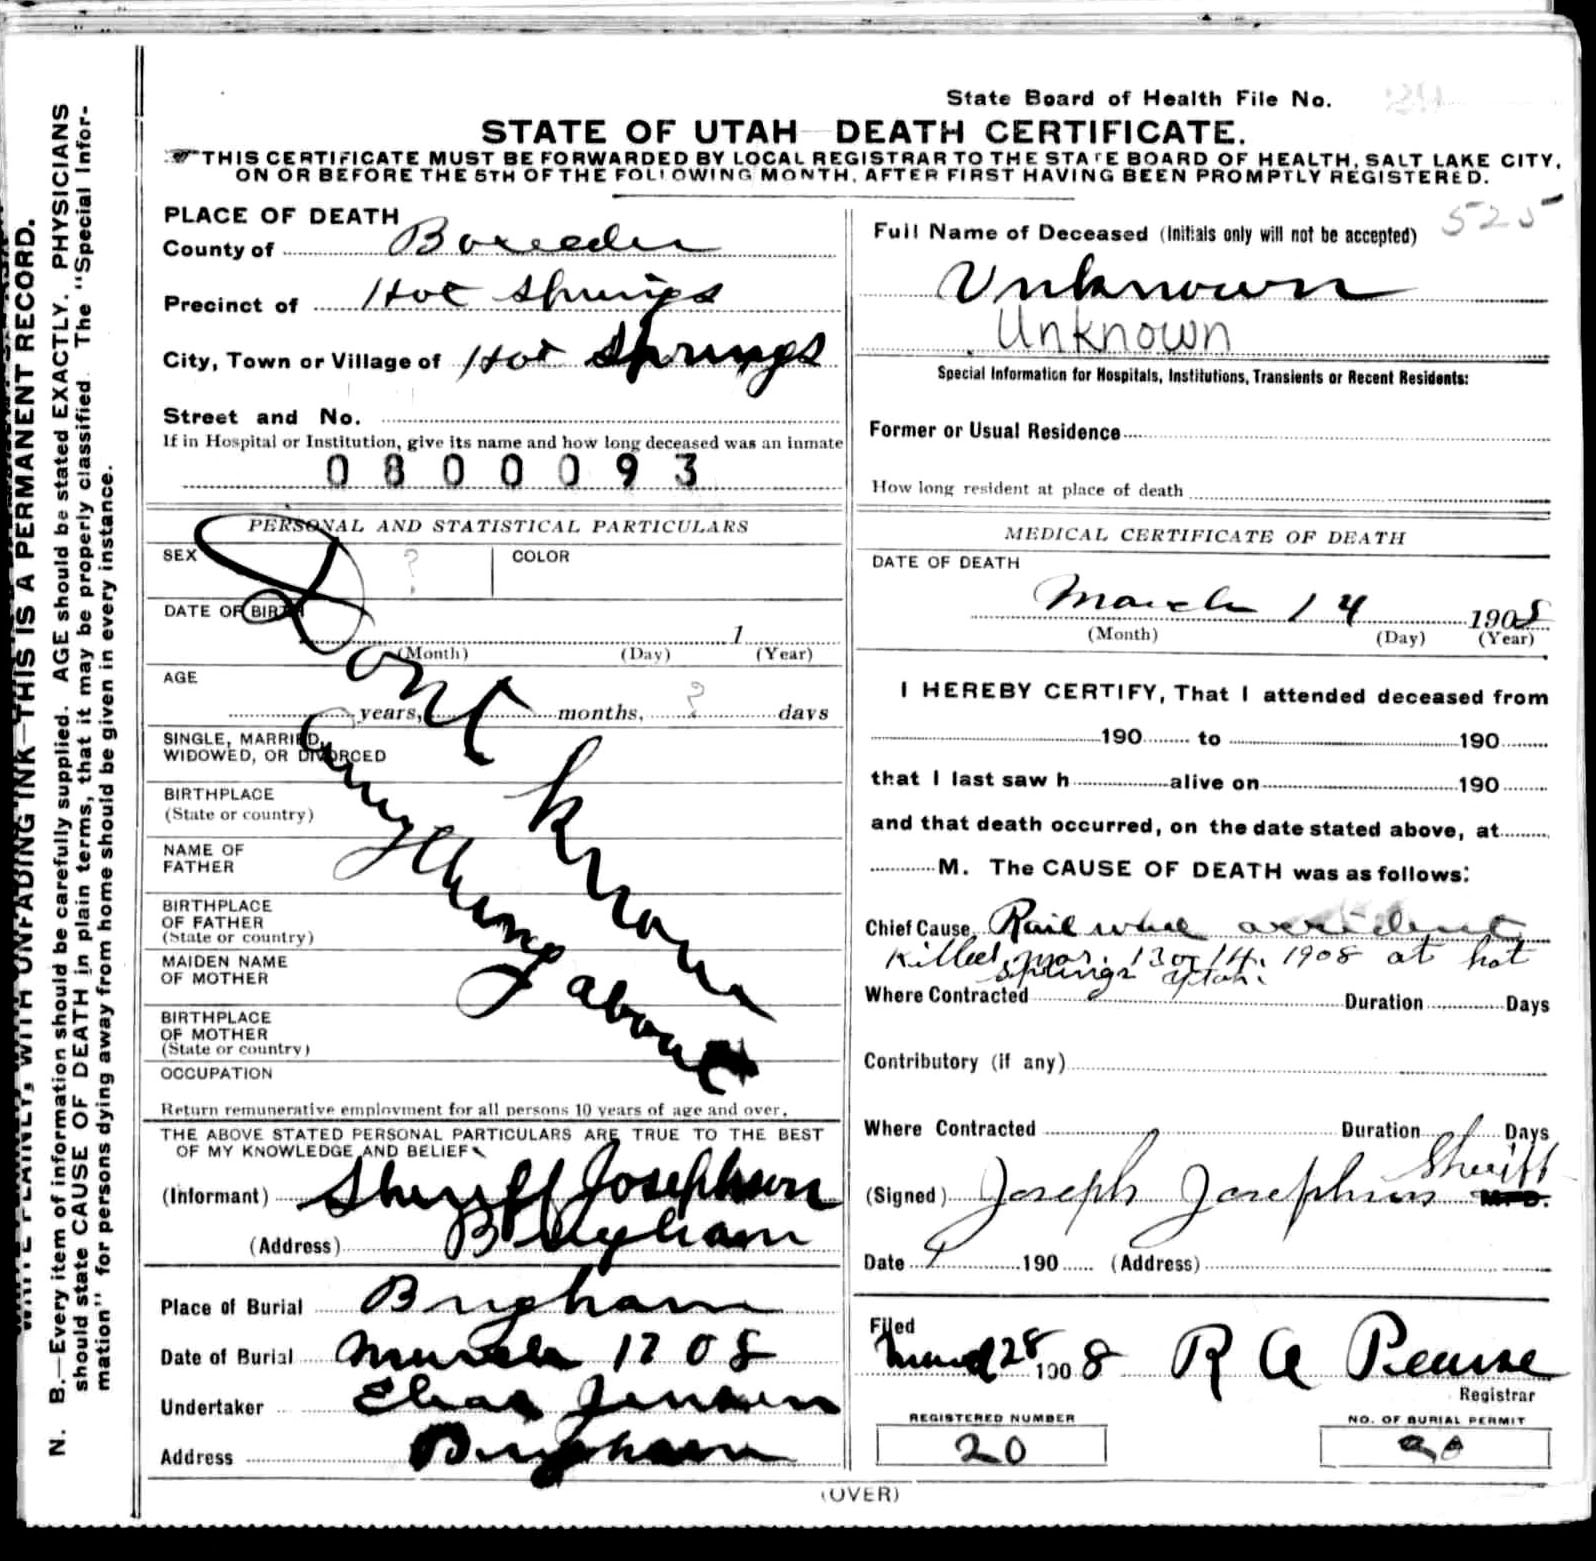 State Board of Health File No.
STATE OF UTAH—DEATH CERTIFICATE.
THIS CERTIFICATE MUST BE FORWARDED BY LOCAL REGISTRAR TO THE STATE BOARD OF HEALTH, SALT LAKE CITY,
ON OR BEFORE THE 5TH OF THE FOLLOWING MONTH, AFTER FIRST HAVING BEEN PROMPTLY REGISTERED.
WRITE PLAINLY, WITH UNFADING INK—THIS IS A PERMANENT RECORD.
N. B.—Every item of information should be carefully supplied. AGE should be stated EXACTLY. PHYSICIANS
should state CAUSE OF DEATH in plain terms, that it may be properly classified. The "Special Infor-
mation" for persons dying away from home should be given in every instance.
PLACE OF DEATH
County of Boxelder
Precinct of Hot Springs
City, Town or Village of Hot Springs
Street and No.
If in Hospital or Institution, give its name and how long deceased was an inmate
0800093
PERSONAL AND STATISTICAL PARTICULARS
SEX ? COLOR
DATE OF BIRTH
1
(Month) (Day) (Year)
AGE
years, months, ? days
SINGLE, MARRIED,
WIDOWED, OR DIVORCED
BIRTHPLACE
(State or country)
NAME OF
FATHER
BIRTHPLACE
OF FATHER
(State or country)
MAIDEN NAME
OF MOTHER
BIRTHPLACE
OF MOTHER
(State or country)
OCCUPATION
Dont know
any thing about
Return remunerative employment for all persons 10 years of age and over.
THE ABOVE STATED PERSONAL PARTICULARS ARE TRUE TO THE BEST
OF MY KNOWLEDGE AND BELIEF
(Informant) Sheriff Josephson
(Address) Brigham
Place of Burial Brigham
Date of Burial March 17 08
Undertaker Elias Jensen
Address Brigham
525
Full Name of Deceased (Initials only will not be accepted)
Unknown
Unknown
Special Information for Hospitals, Institutions, Transients or Recent Residents:
Former or Usual Residence
How long resident at place of death
MEDICAL CERTIFICATE OF DEATH
DATE OF DEATH
March 14 1908
(Month) (Day) (Year)
I HEREBY CERTIFY, That I attended deceased from
190 to 190
that I last saw h alive on 190
and that death occurred, on the date stated above, at
M. The CAUSE OF DEATH was as follows:
Chief Cause Rail accident
Killed mar. 13 or 14, 1908 at hot
springs Utah.
Where Contracted Duration Days
Contributory (if any)
Where Contracted Duration Days
Sheriff
(Signed) Joseph Josephson M. D.
Date 190 (Address)
Filed
March 28 1908 R A Pearse
Registrar
REGISTERED NUMBER
20
NO. OF BURIAL PERMIT
(OVER)